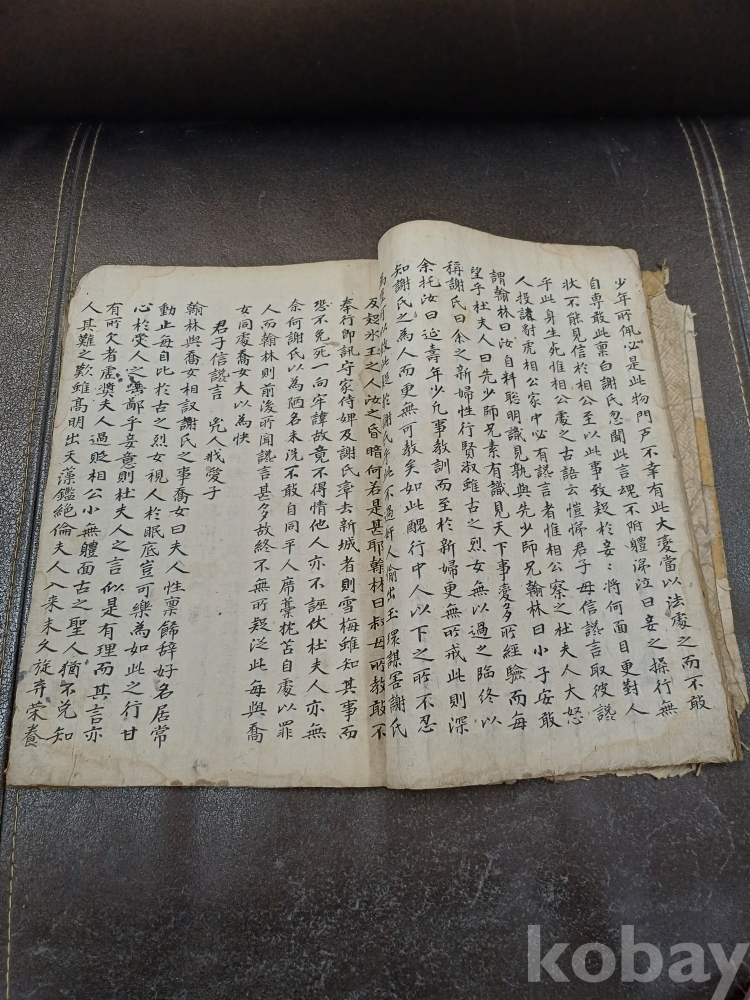 少年所佩必是此物門戶不幸有此大變當以法處之而不敢
自專敢此禀白謝氏忽聞此言魂不附體涕泣曰妾之操行無
狀不能見信於相公至以此事致疑於妾妾將何面目更對人
乎此身生死惟相公處之古語云愷悌君子毋信讒言取彼讒
人投諸豺虎相公家中必有讒言者惟相公察之杜夫人大怒
謂翰林曰汝自料聰明識見孰與先少師兄翰林曰小子安敢
望乎杜夫人曰先少師兄素有識見天下事變多所經驗而每
稱謝氏曰余之新婦性行賢淑雖古之烈女無以過之臨終以
余托汝曰延壽年少凡事敎訓而至於新婦更無所戒此則深
知謝氏之為人而更無可敎矣如此醜行中人以下之所不忍
為 謝氏乎此不過奸人偷出玉環謀害謝氏
反疑氷玉之人汝之昏暗何若是甚耶翰林曰叔母所敎敢不
奉行卽訊守家侍婢及謝氏 去新城者則雪梅雖知其事而
恐不免死一向牢諱故竟不得情他人亦不誣伏杜夫人亦無
奈何謝氏以為陋名未洗不敢自同平人席藁枕苫自處以罪
人而翰林則前後所聞讒言甚多故終不無所疑泛此每與喬
女同處喬女大以為快
君子信讒言 兇人戕愛子
翰林與喬女相議謝氏之事喬女曰夫人性禀餙辞好名居常
動止每自比於古之烈女視人於眠底豈可樂為如此之行甘
心於受人之 鄙乎妾意則杜夫人之言似是有理而其言亦
有所欠者虛獎夫人過貶相公小無體面古之聖人猶不免知
人其難之歎雖高明出天藻鑑絕倫夫人入來未久旋 榮養